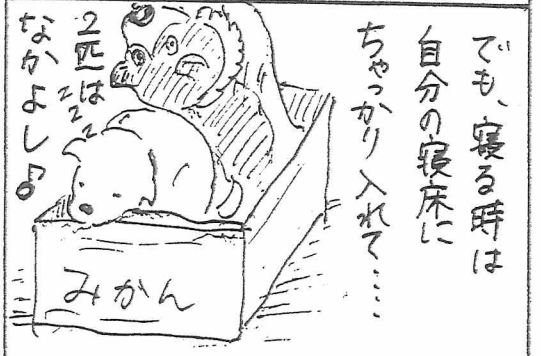 でも、寝る時は
自分の寝床に
ちゃっかり入れて・・・・
2匹は
なかよし♪
zzzz
みかん